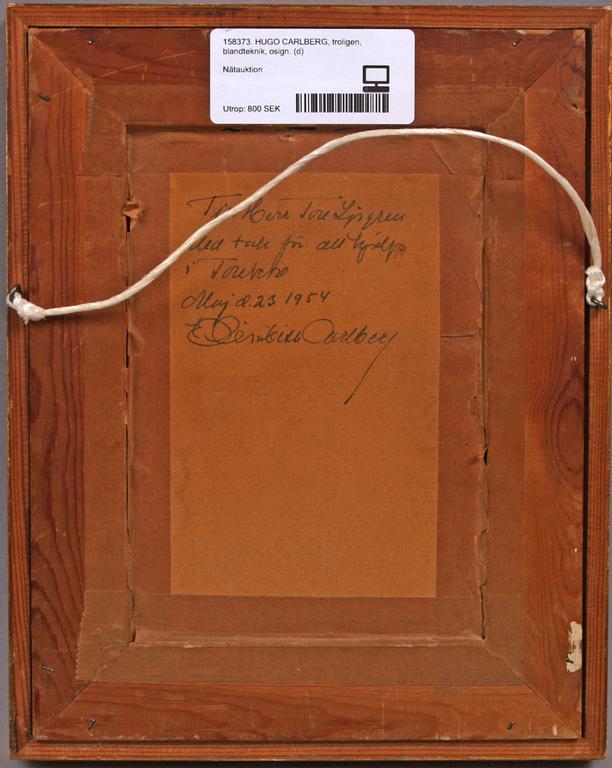 158373. HUGO CARLBERG, troligen,
blandteknik, osign. (d)
Nätauktion
Utrop: 800 SEK
Herr Tore Ljsgren
med tack för all hjälp
i
Maj d. 23 1954
E Carlberg